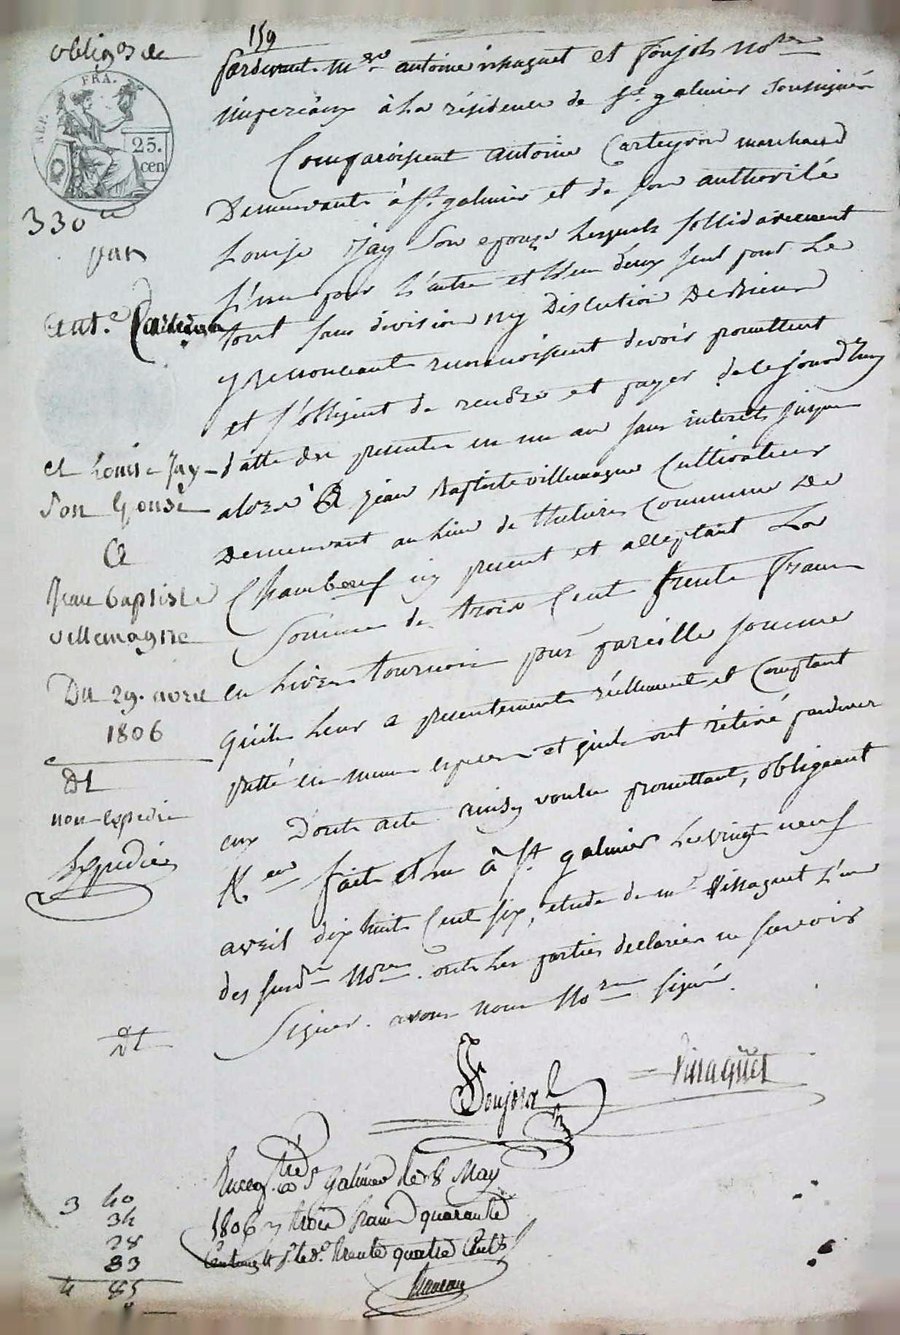 159
obligaõn de
REP. FRA.
25.
cen
330
par
ant.e Carteyron
et Louise Jay
Son Epouse
A
Jean baptiste
villemagne
Du 29. avril
1806
Dt
non-expedié
Expedié
Dt
Pardevant M.es antoine Vinaguet et Poujols No.res
imperiaux à la résidence de St. galmier Soussignés
Comparoissent antoine Carteyron marchand
Demeurants à St. galmier et de son authorité
Louise Jay Son epouse Lesquels sollidairement
L'un pour L'autre et L'un d'eux seul pour Le
tout sans division ny Discution De Biens
y Renonceant reconnoissent devoir promettent
et s'obligent de rendre et payer de ce jourd'huy
datte des presentes en un an sans interets jusque
alors à jean Baptiste villemagne Cultivateur
Demeurant au Lieu de Commune De
Chambœuf icy present et acceptant La
Somme de trois Cent trente francs
en Livres tournois pour pareille somme
qu'il Leur a presentement réellement et Comptant
pretté en memes especes et qu'ils ont retiré pardevers
eux Dont acte ainsy voulu promettant, obligeant
R.en fait et Lu à St. galmier Le vingt neuf
avril dix huit Cent six, etude de m.e Vinaguet L'un
des susd. No.res ont Les parties declarées ne Savoir
Signer. avons nous No.res signé.
Poujols
Vinaguet
Enreg.tré à St Galmier le 8 May
1806 r trois francs quarante
Centimes trente quatre Cent.s
3 40
34
28
83
4 85